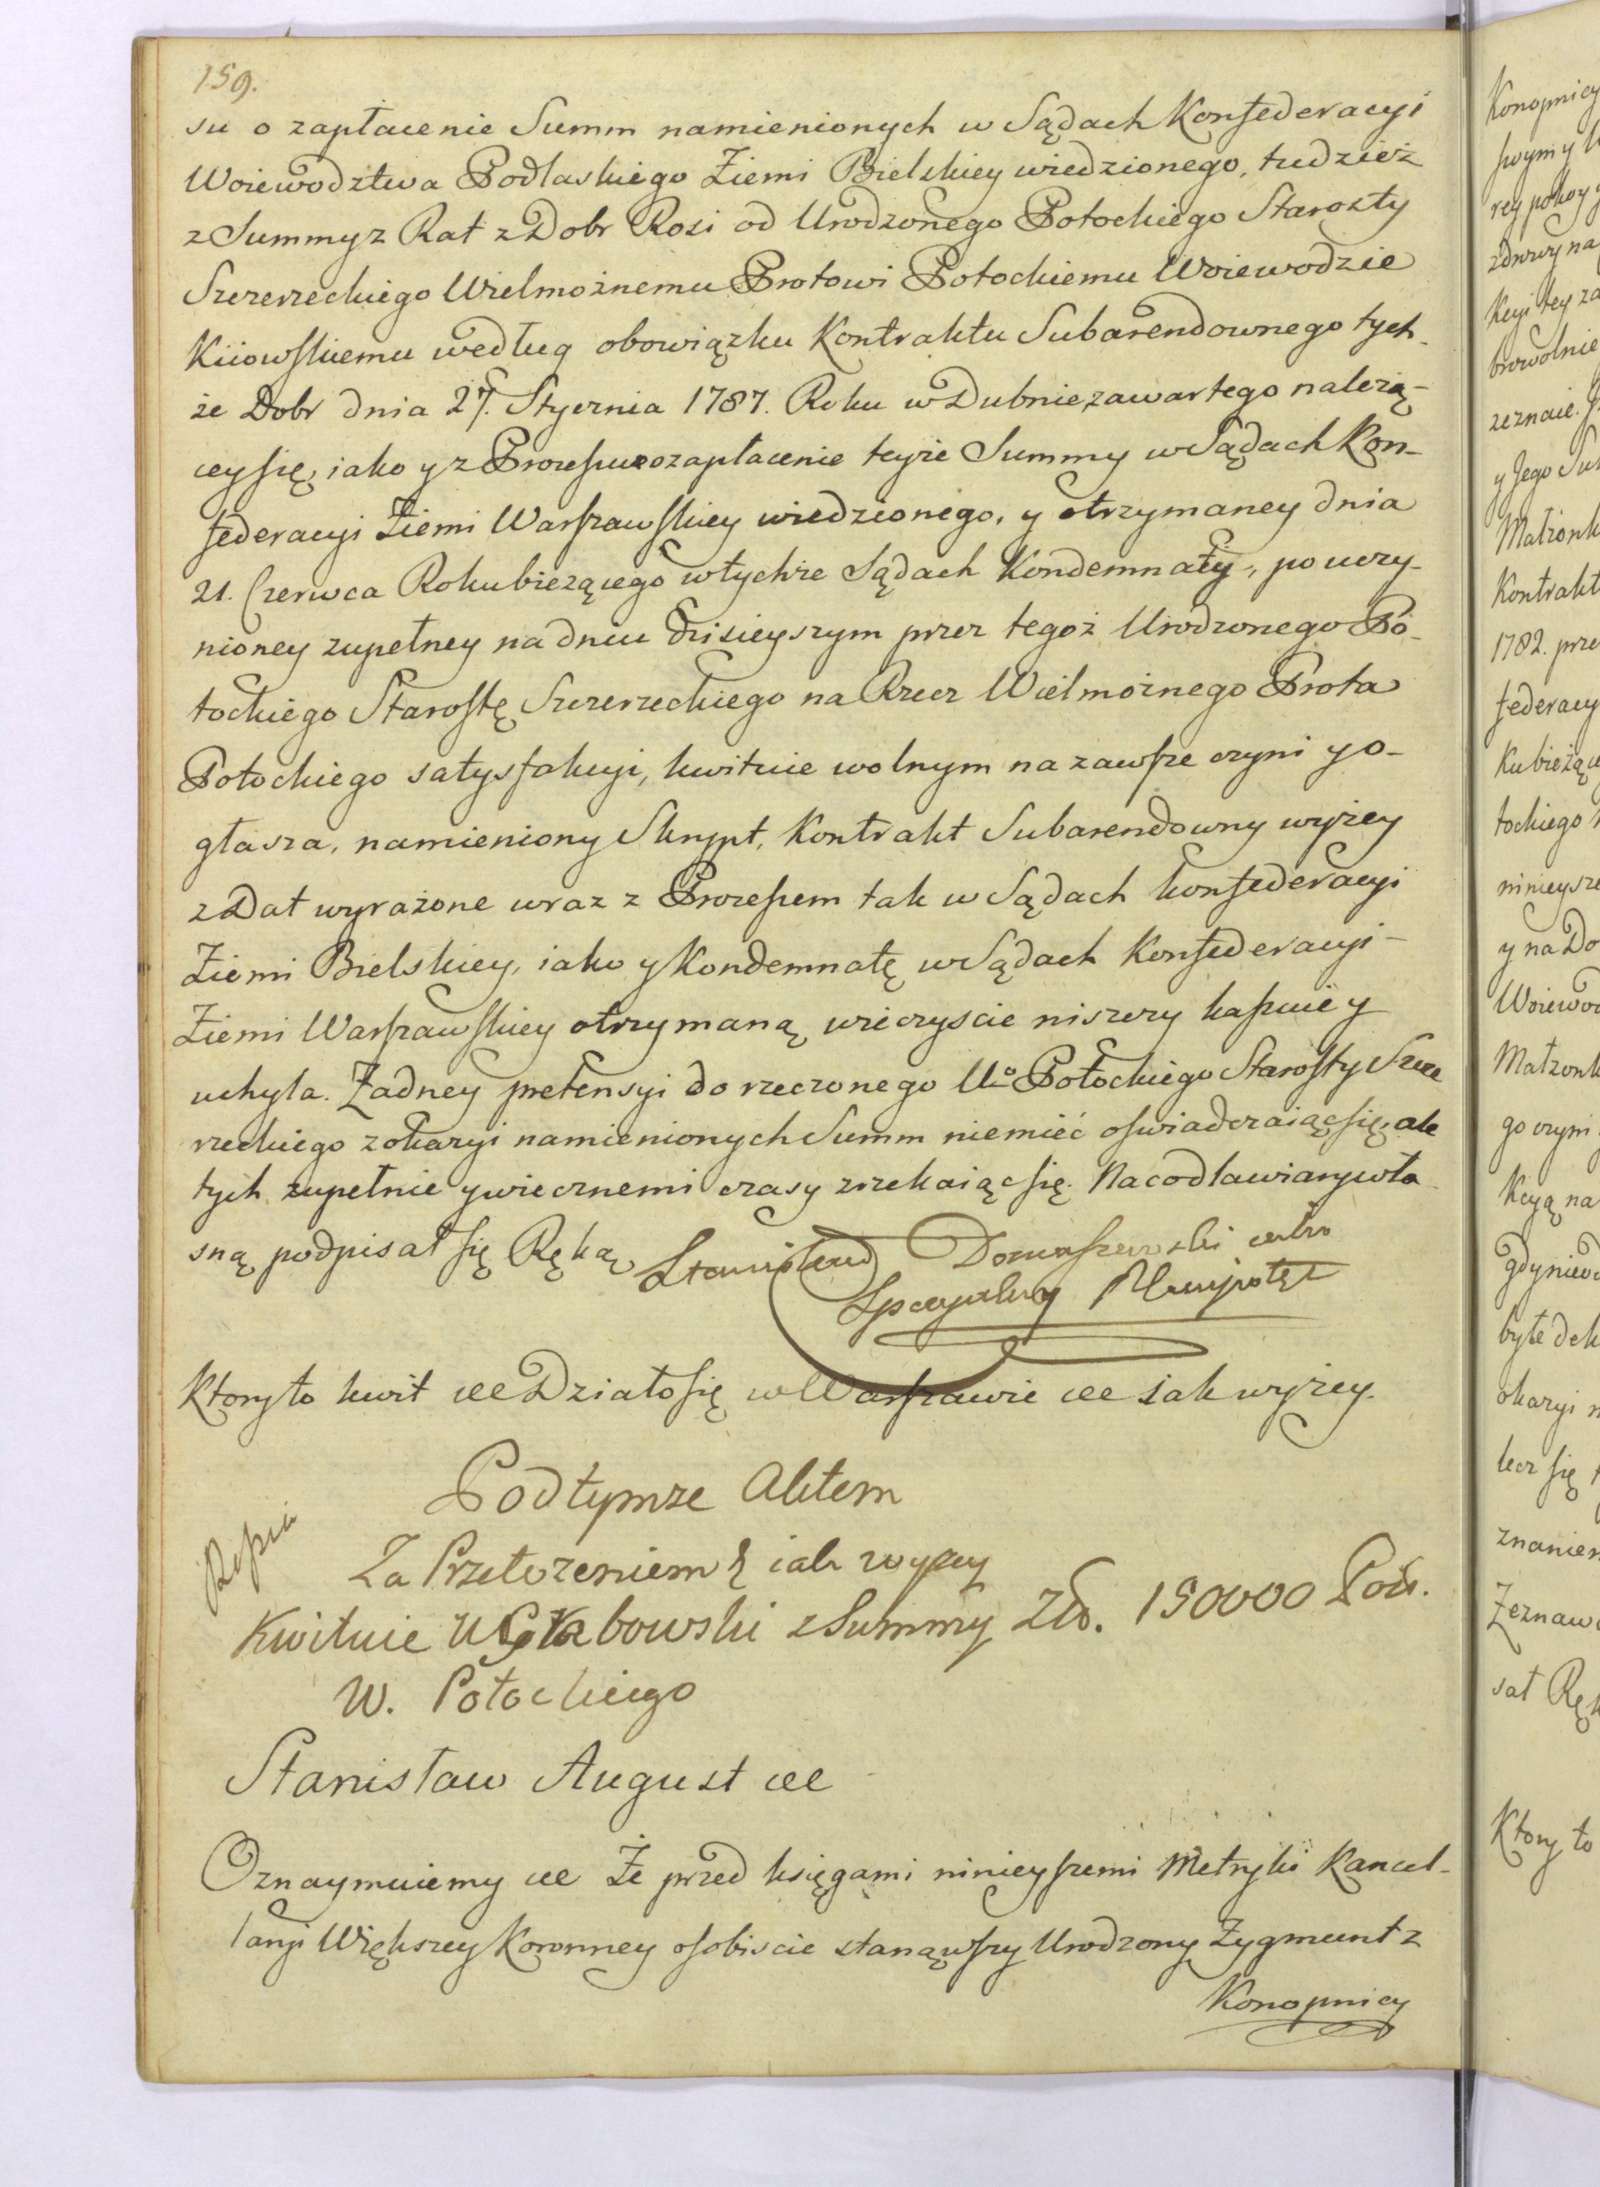 159.
su o zapłacenie Summ namienionych w Sądach Konfederacyi
Woiewodztwa Podlaskiego Ziemi Bielskiey wiedzionego, tudzież
z Summy z Rat z Dobr Rosi od Urodzonego Potockiego Starosty
Szczerzeckiego Wielmożnemu Protowi Potockiemu Woiewodzie
Kiiowskiemu według obowiązku Kontraktu Subarendownego tych
że Dobr dnia 27. Stycznia 1787. Roku w Dubnie zawartego należą-
cey się, iako y z Processu o zapłacenie teyże Summy w Sądach Kon-
federacyi Ziemi Warszawskiey wiedzionego, y otrzymaney dnia
21. Czerwca Roku bieżącego w tychże Sądach Kondemnaty, po uczy-
nioney zupełney na dniu dzisieyszym przez tegoż Urodzonego Po-
tockiego Starostę Szczerzeckiego na Rzecz Wielmożnego Prota
Potockiego satysfakcyi, kwituie wolnym na zawsze czyni y o-
głasza, namieniony Skrypt, Kontrakt Subarendowny wyżey
z Dat wyrażone wraz z Processem tak w Sądach konfederacyi
Ziemi Bielskiey, iako y Kondemnatę w Sądach Konfederacyi
Ziemi Warszawskiey otrzymaną wieczyscie niszczy kassuie y
uchyla. Żadney pretensyi do rzeczonego Uo Potockiego Starosty Szcze
rzeckiego z okazyi namienionych Summ niemieć oświadczaiąc się, ale
tych zupełnie y wiecznemi czasy zrzekaiąc się. Na co dla wiary wła
sną podpisał się Ręką Stanisław Domaszewski iako
Specyalny Plenipotent
Ktory to kwit etc Działo się w Warszawie etc iak wyżey.
Pod tymże Aktem
Za Przełożeniem iak wyżey
Kwituie U Grabowski z Summy Zło. 150000 Pols.
W. Potockiego
Stanisław August etc
Oznaymuiemy etc Że przed księgami ninieyszemi Metryki Kancel-
laryi Większey Koronney osobiscie stanąwszy Urodzony Zygmunt z
Konopnicy